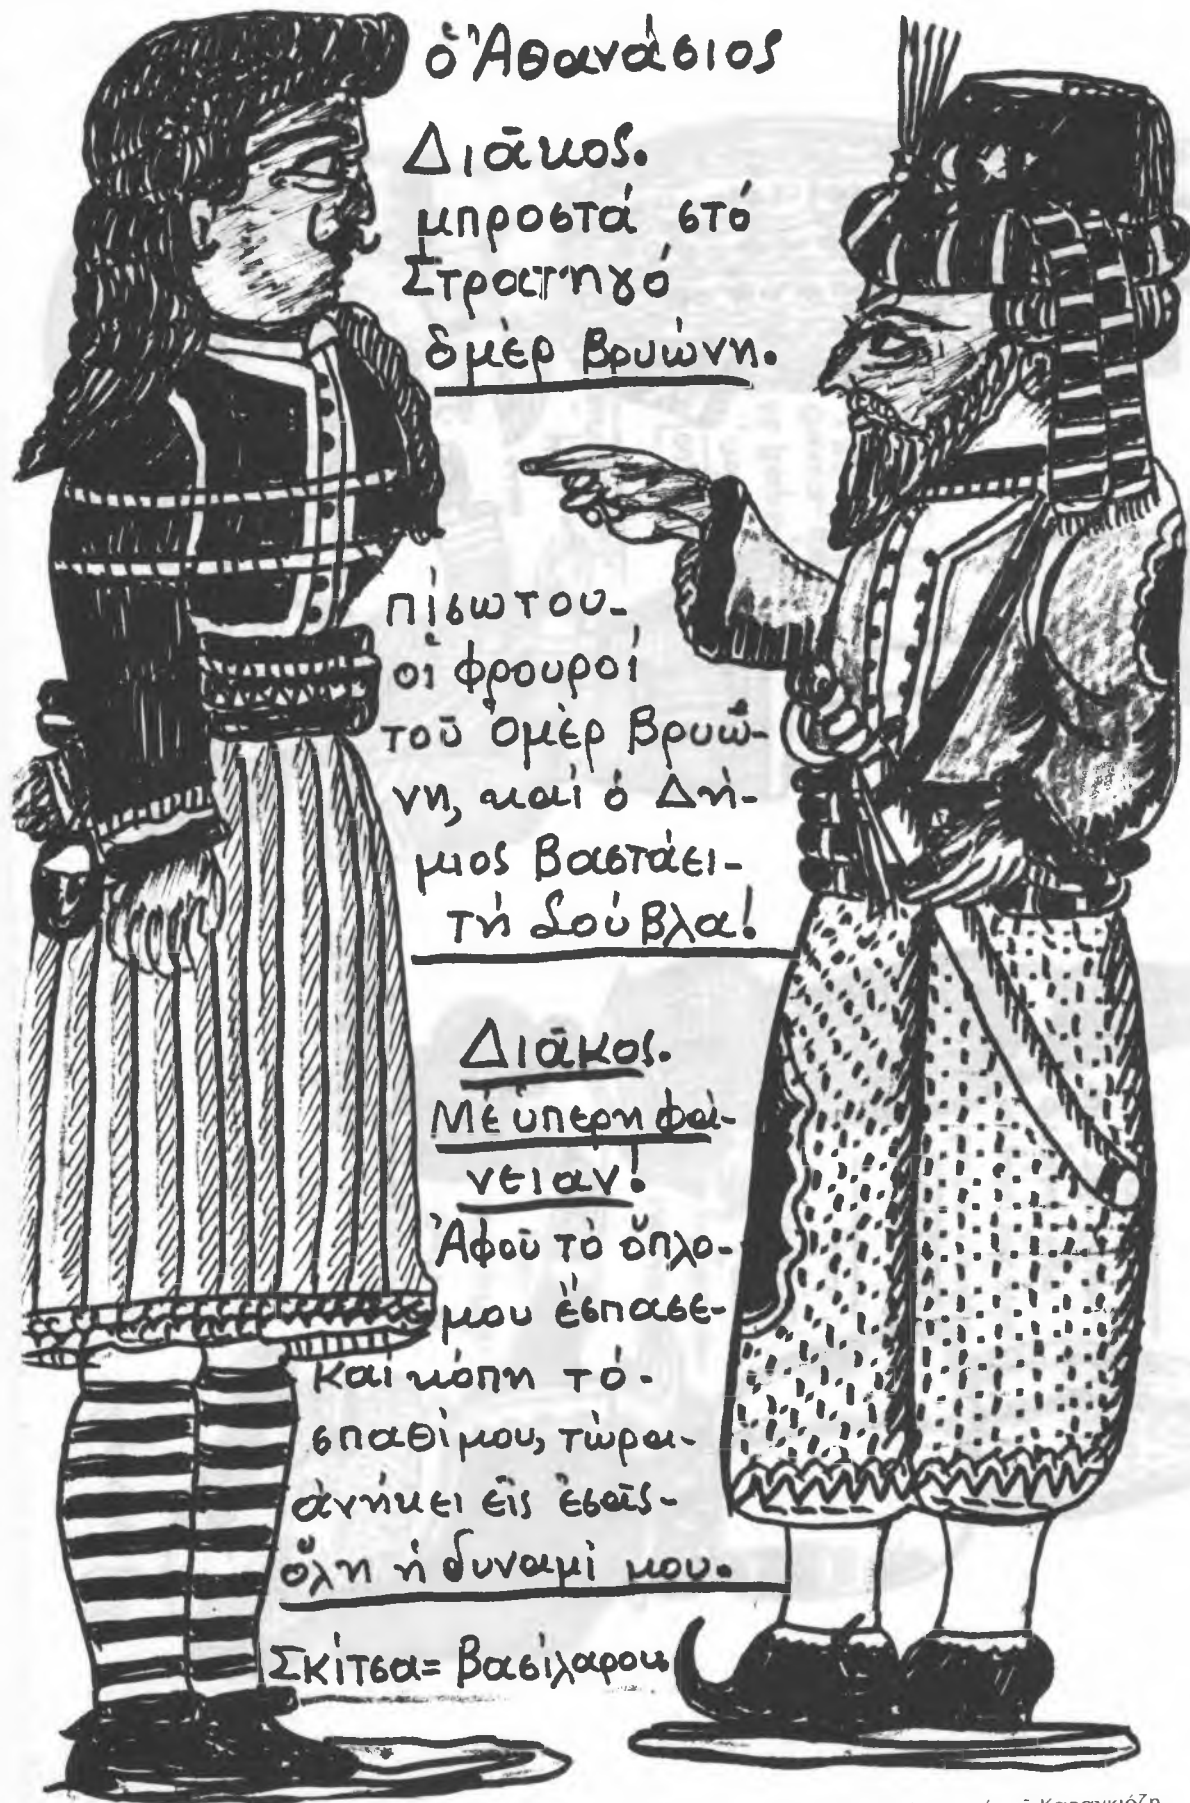 ὁ Ἀθανάσιος
Διᾶκος.
μπροστά στό
Στρατηγό
ὁμέρ Βρυώνη.
πίσω του-
οἱ φρουροί
τοῦ Ὁμέρ Βρυώ-
νη, καί ὁ Δή-
μιος Βαστάει-
τή Σούβλα!
Διᾶκος.
Μέ ὑπερηφά-
νειαν!
Ἀφοῦ τό ὅπλο-
μου ἔσπασε-
καί κόπη τό-
σπαθί μου, τώρα-
ἀνήκει εἰς ἐσᾶς-
ὅλη ἡ δυναμί μου.
Σκίτσα= Βασίλαρου
Καραγκιόζη